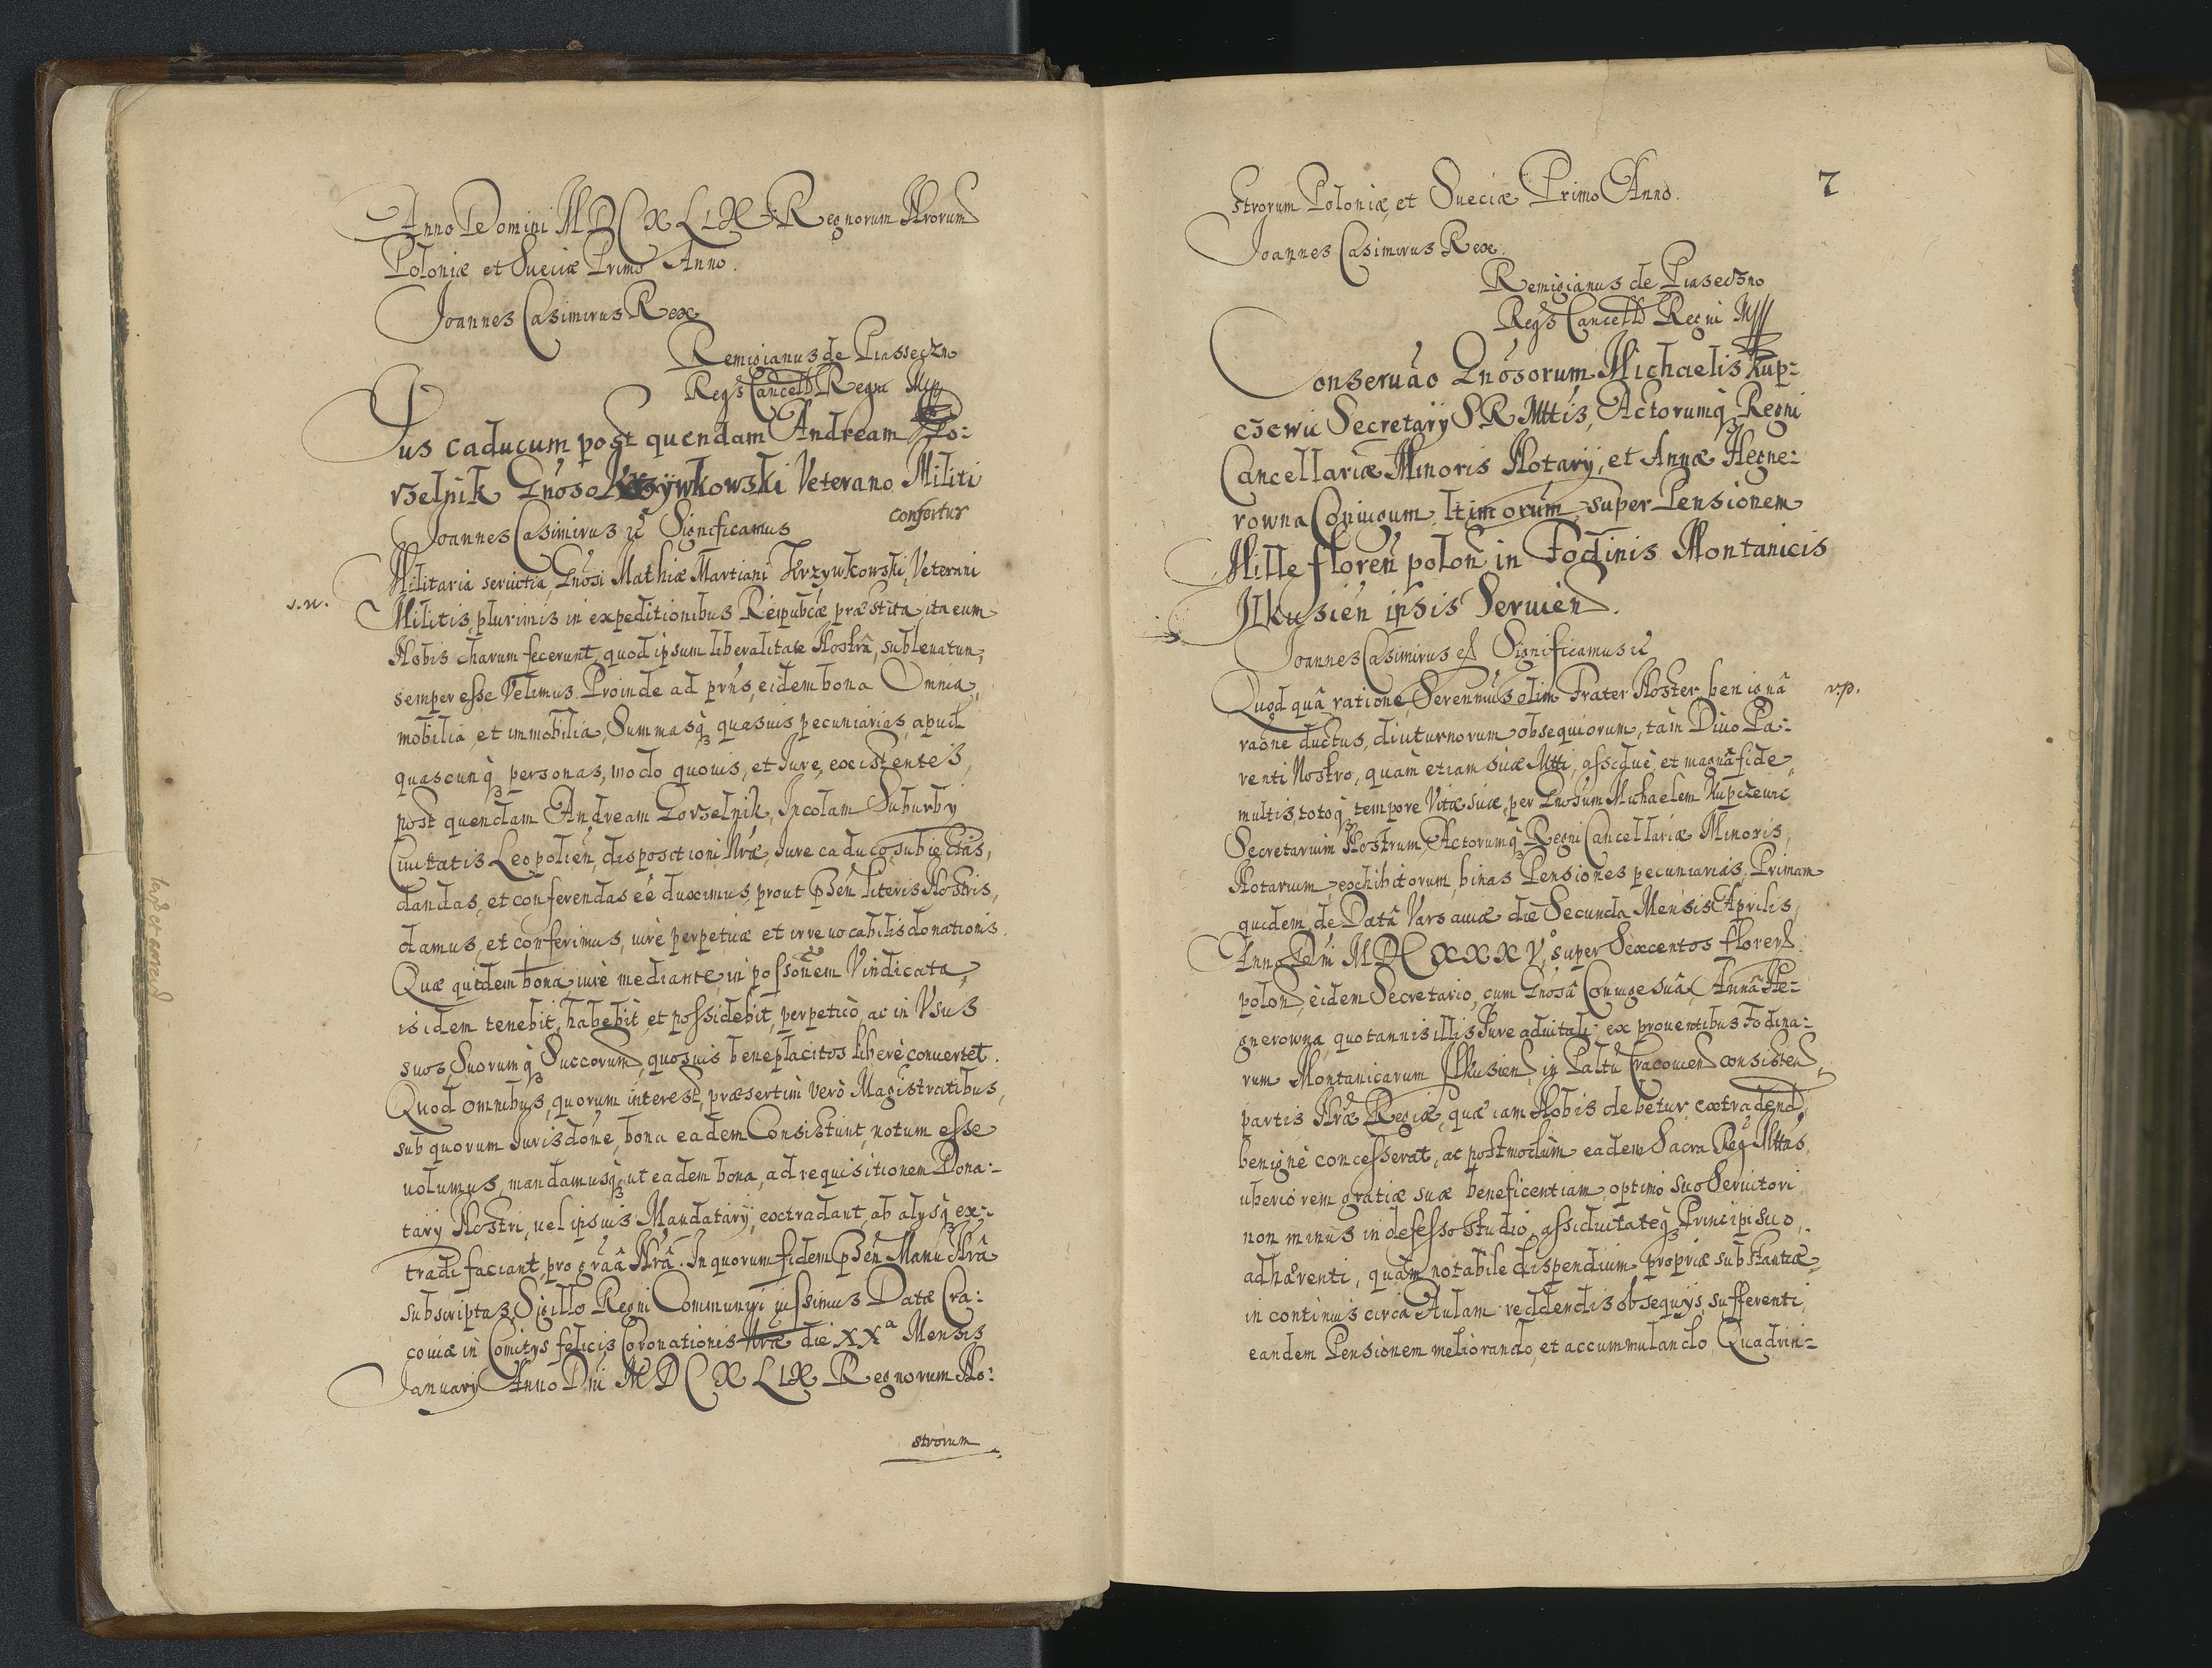 Anno Domini MDCXLIX Regnorum Nrorum
Poloniæ et Sueciæ Primo Anno.
Joannes Casimirus Rex
Remigianus de Piasseczno
Regs Cancell Regni Mpp
Jus caducum post quendam Andream Go:
rzelnik Gnoso Krzywkowski Veterano Militi
confertur
Joannes Casimirus etc Significamus
Militaria servitia, Gnosi Mathiæ Martiani Krzywkowski, Veterani
s. n.
Militis, plurimis in expeditionibus Reipubcæ præstita, ita eum
Nobis charum fecerunt, quod ipsum liberalitate Nostrâ, subleuatum,
semper esse Velimus. Proinde ad prns, eidem bona Omnia,
mobilia, et immobilia, Summasq quasuis pecuniarias, apud
quascunq personas, modo quouis, et Jure, existentes,
post quendam Andream Gorzelnik, Incolam Suburbÿ
Ciuitatis Leopolien, dispositioni Nræ, Jure caduco, subiectas,
dandas, et conferendas eê duximus, prout pñsen literis Nostris,
damus, et conferimus, iure perpetuæ et irreuocabilis donationis.
Quæ quidem bona, iure mediante, in possonem Vindicata,
is idem tenebit, habebit, et possidebit, perpetuò, ac in Vsus
suos, Suorumq Succorum, quosuis beneplacitos liberè conuertet.
Quod omnibus, quorum interest, præsertim verò Magistratibus,
sub quorum Jurisdone, bona eadem Consistunt, notum esse
uolumus, mandamusq, ut eadem bona, ad requisitionem Dona:
tarÿ Nostri, uel ipsius Mandatarÿ, extradant, ab alÿsq ex:
tradi faciant, pro graâ Nrâ. In quorum fidem pñsen Manu Nrâ
subscriptas, Sigillo Regni Communiri iussimus. Datæ Cra:
couiæ in Comitÿs felicis Coronationis Nræ die XXa Mensis
Januarÿ Anno Dni MDCXLIX Regnorum No:
strorum
7
strorum Poloniæ, et Sueciæ Primo Anno.
Joannes Casimirus Rex.
Remigianus de Piaseczno
Regs Cancell Regni Mpp
Conseruao Gnosorum Michaelis Kup:
czewic Secretarÿ S R Mttis, Actorumq Regni
Cancellariæ Minoris Notarÿ, et Annæ Hegne:
rowna Coniugum ltimorum, super Pensionem
Mille floren polon in Fodinis Montanicis
Ilkusien ipsis Seruien.
Joannes Casimirus etc Significamus etc
Quod quâ ratione, Serenmus olim Frater Noster, benignâ
v. p.
raone ductus, diuturnorum obsequiorum, tam Diuo Pa:
renti Nostro, quàm etiam suæ Mtti, assiduè, et magnâ fide,
multis, totoq tempore Vitæ suæ, per Gnosum Michaelem Kupczewic
Secretarium Nostrum, Actorumq Regni Cancellariæ Minoris,
Notarium exhibitorum, binas Pensiones pecuniarias, Primam
quidem de Datâ Varsauiæ die Secunda Mensis Aprilis,
Anno Dni MDCXXXVo, super Sexcentos floren
polon, eidem Secretario, cum Gnosâ Coniuge suâ, Annâ He:
gnerowna, quotannis illis Jure aduitali, ex prouentibus Fodina:
rum Montanicarum Ilkusien, in Paltu Cracouien consisten,
partis Nræ Regiæ, quæ iam Nobis debetur, extradend,
benignè concesserat, ac postmodùm eadem Sacra Reg Mttas,
uberiorem gratiæ suæ beneficentiam, optimo suo Seruitori,
non minùs indefesso Studio, assiduitateq Principi suo,
adhærenti, quàm notabile dispendium propriæ substantiæ,
in continuis circa Aulam reddendis obsequÿs, sufferenti,
eandem Pensionem meliorando, et accummulando Quadrin: